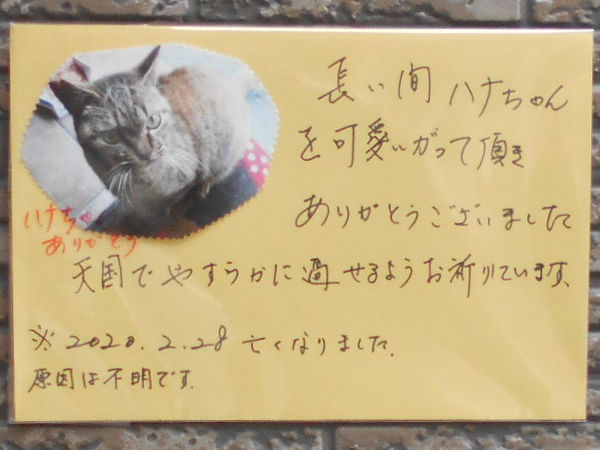 長い間ハナちゃん
を可愛いがって頂き
ありがとうございました
ハナちゃん
ありがとう
天国でやすらかに過せるようお祈りています。
※2020.2.28亡くなりました。
原因は不明です。